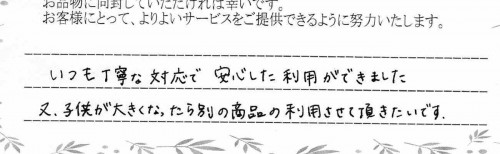 お品物に同封していただければ幸いです。
お客様にとって、よりよいサービスをご提供できるように努力いたします。
いつも丁寧な対応で 安心した利用ができました
又、子供が大きくなったら別の商品の利用させて頂きたいです。